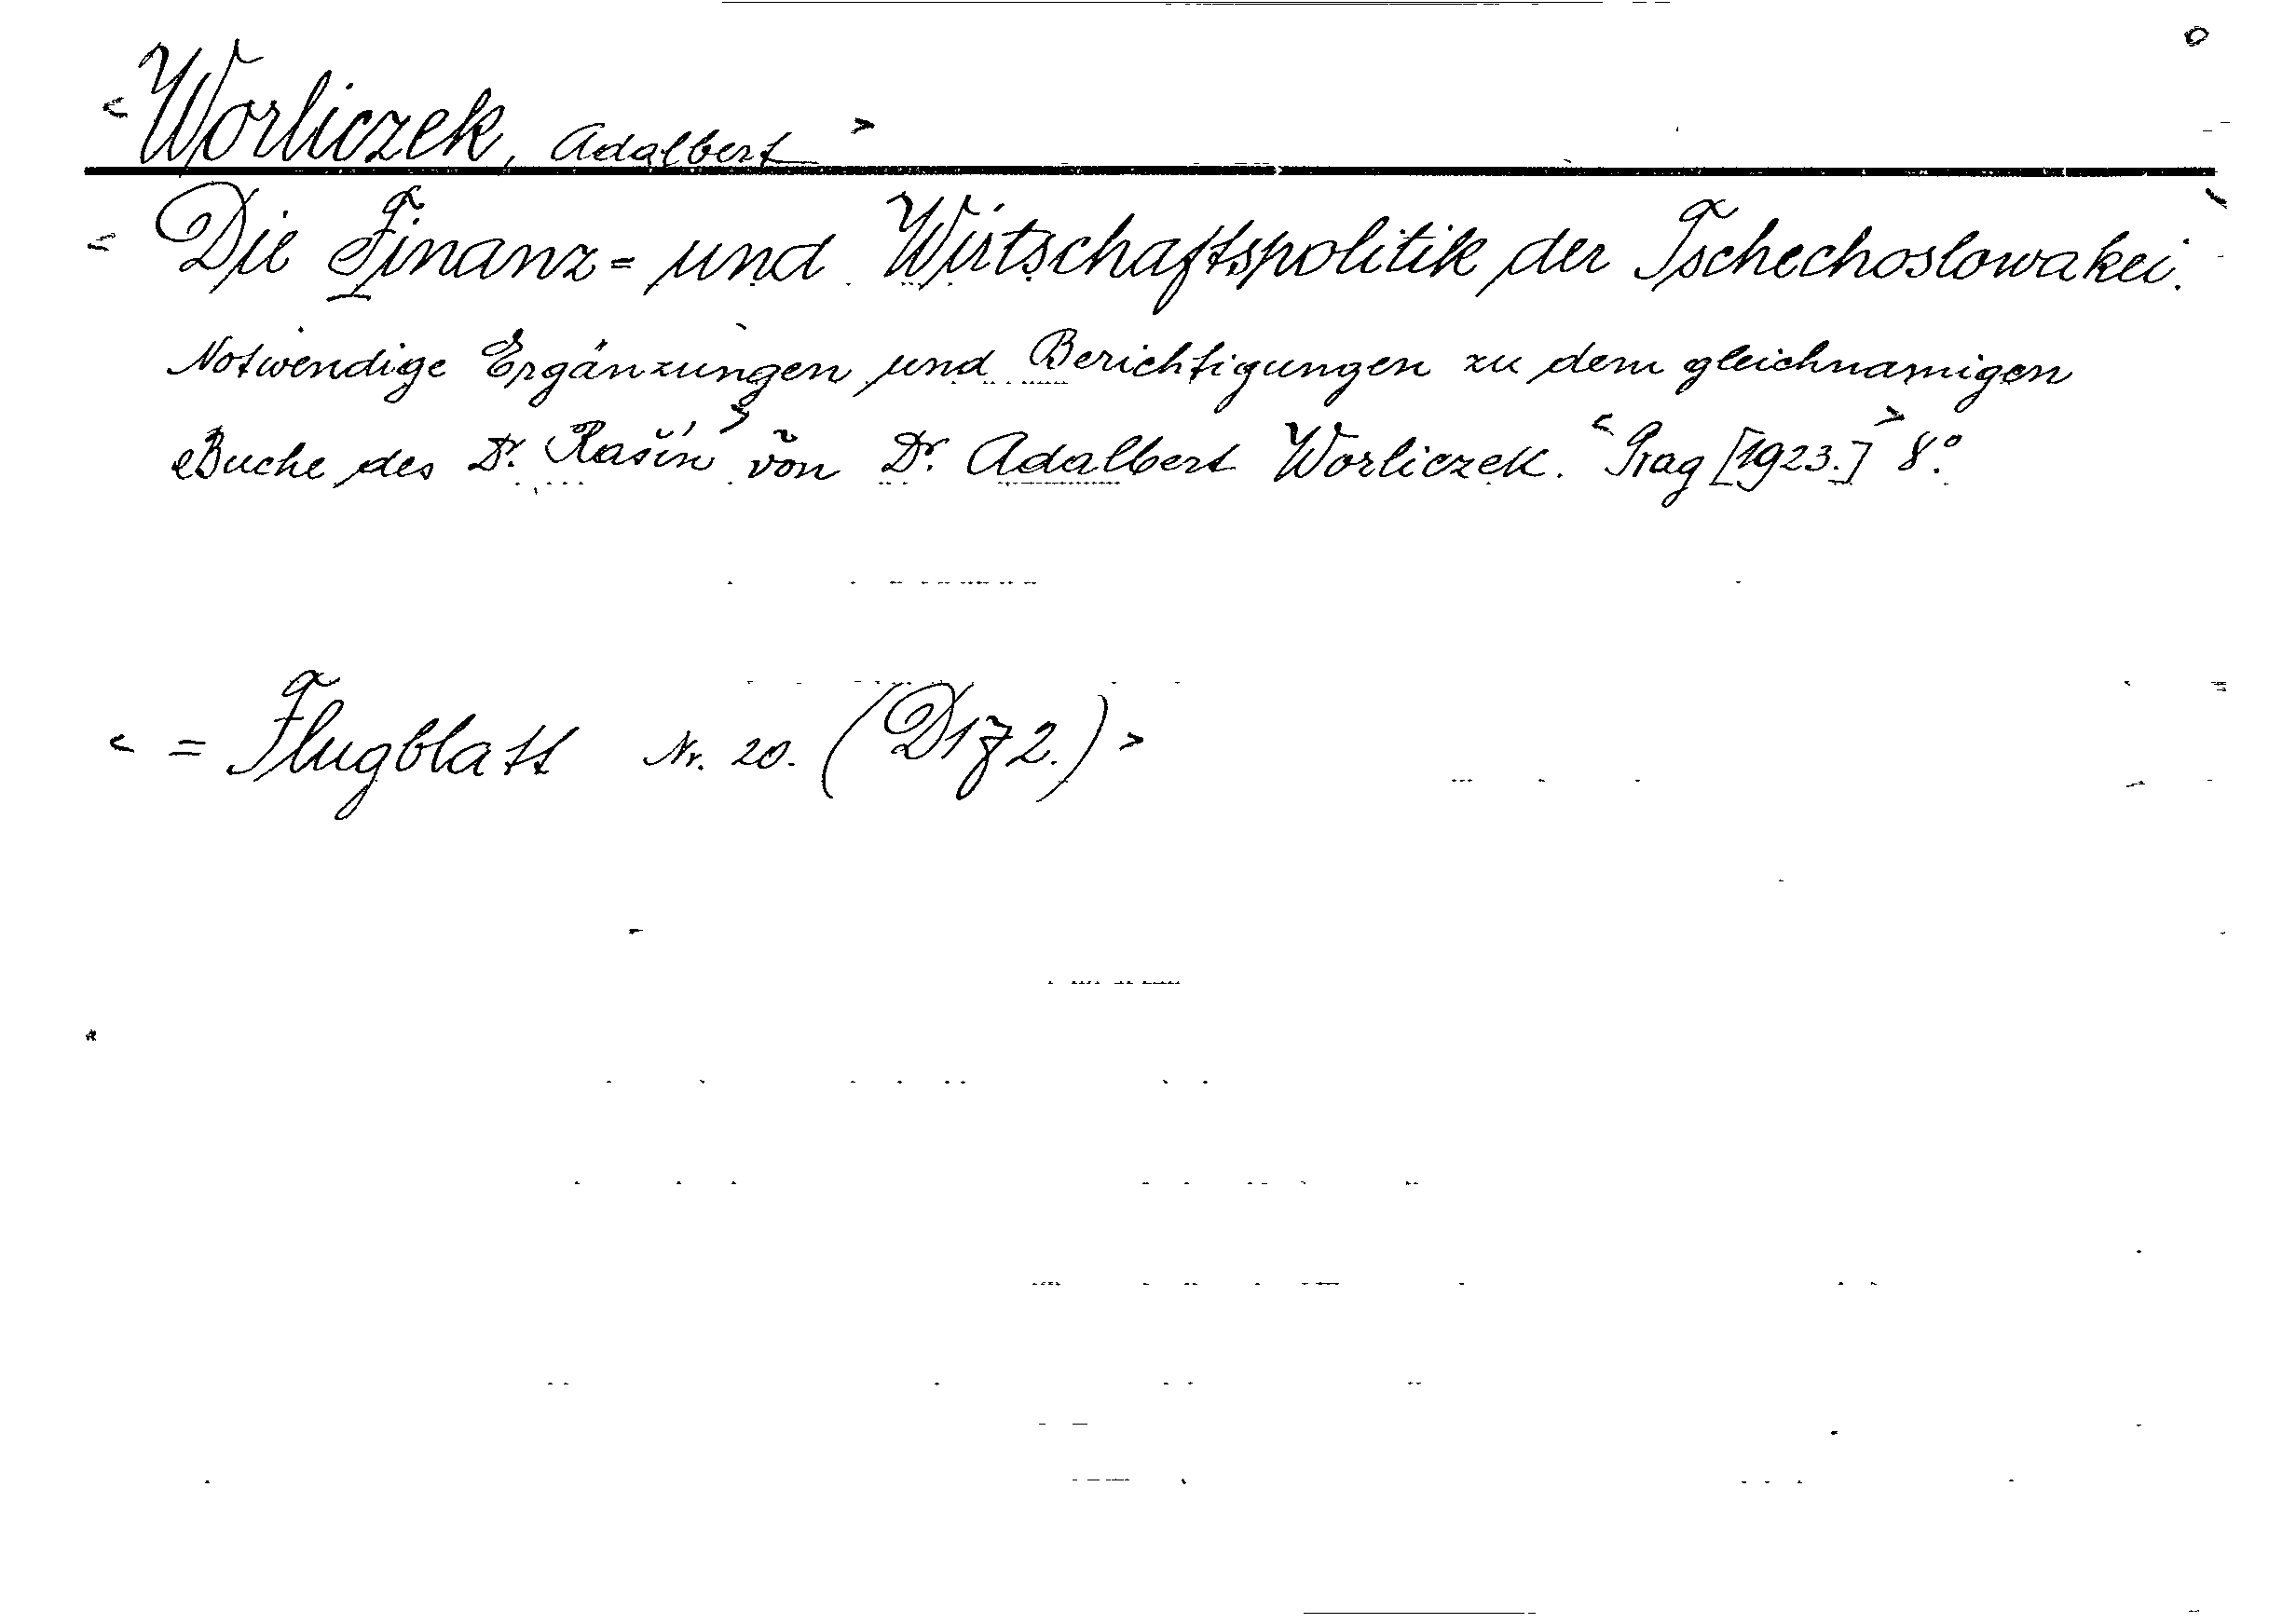 < Worliczek, Adalbert >
< Die Finanz= und Wirtschaftspolitik der Tschechoslowakei.
Notwendige Ergänzungen und Berichtigungen zu dem gleichnamigen
Buche des Dr. Rašín > von Dr. Adalbert Worliczek. < Prag [1923.] > 8°.
< = Flugblatt Nr. 20. ( 2.) >